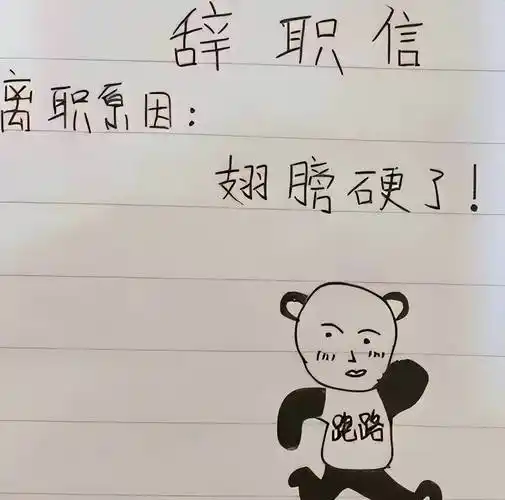 辞职信
离职原因:
翅膀硬了!
跑路